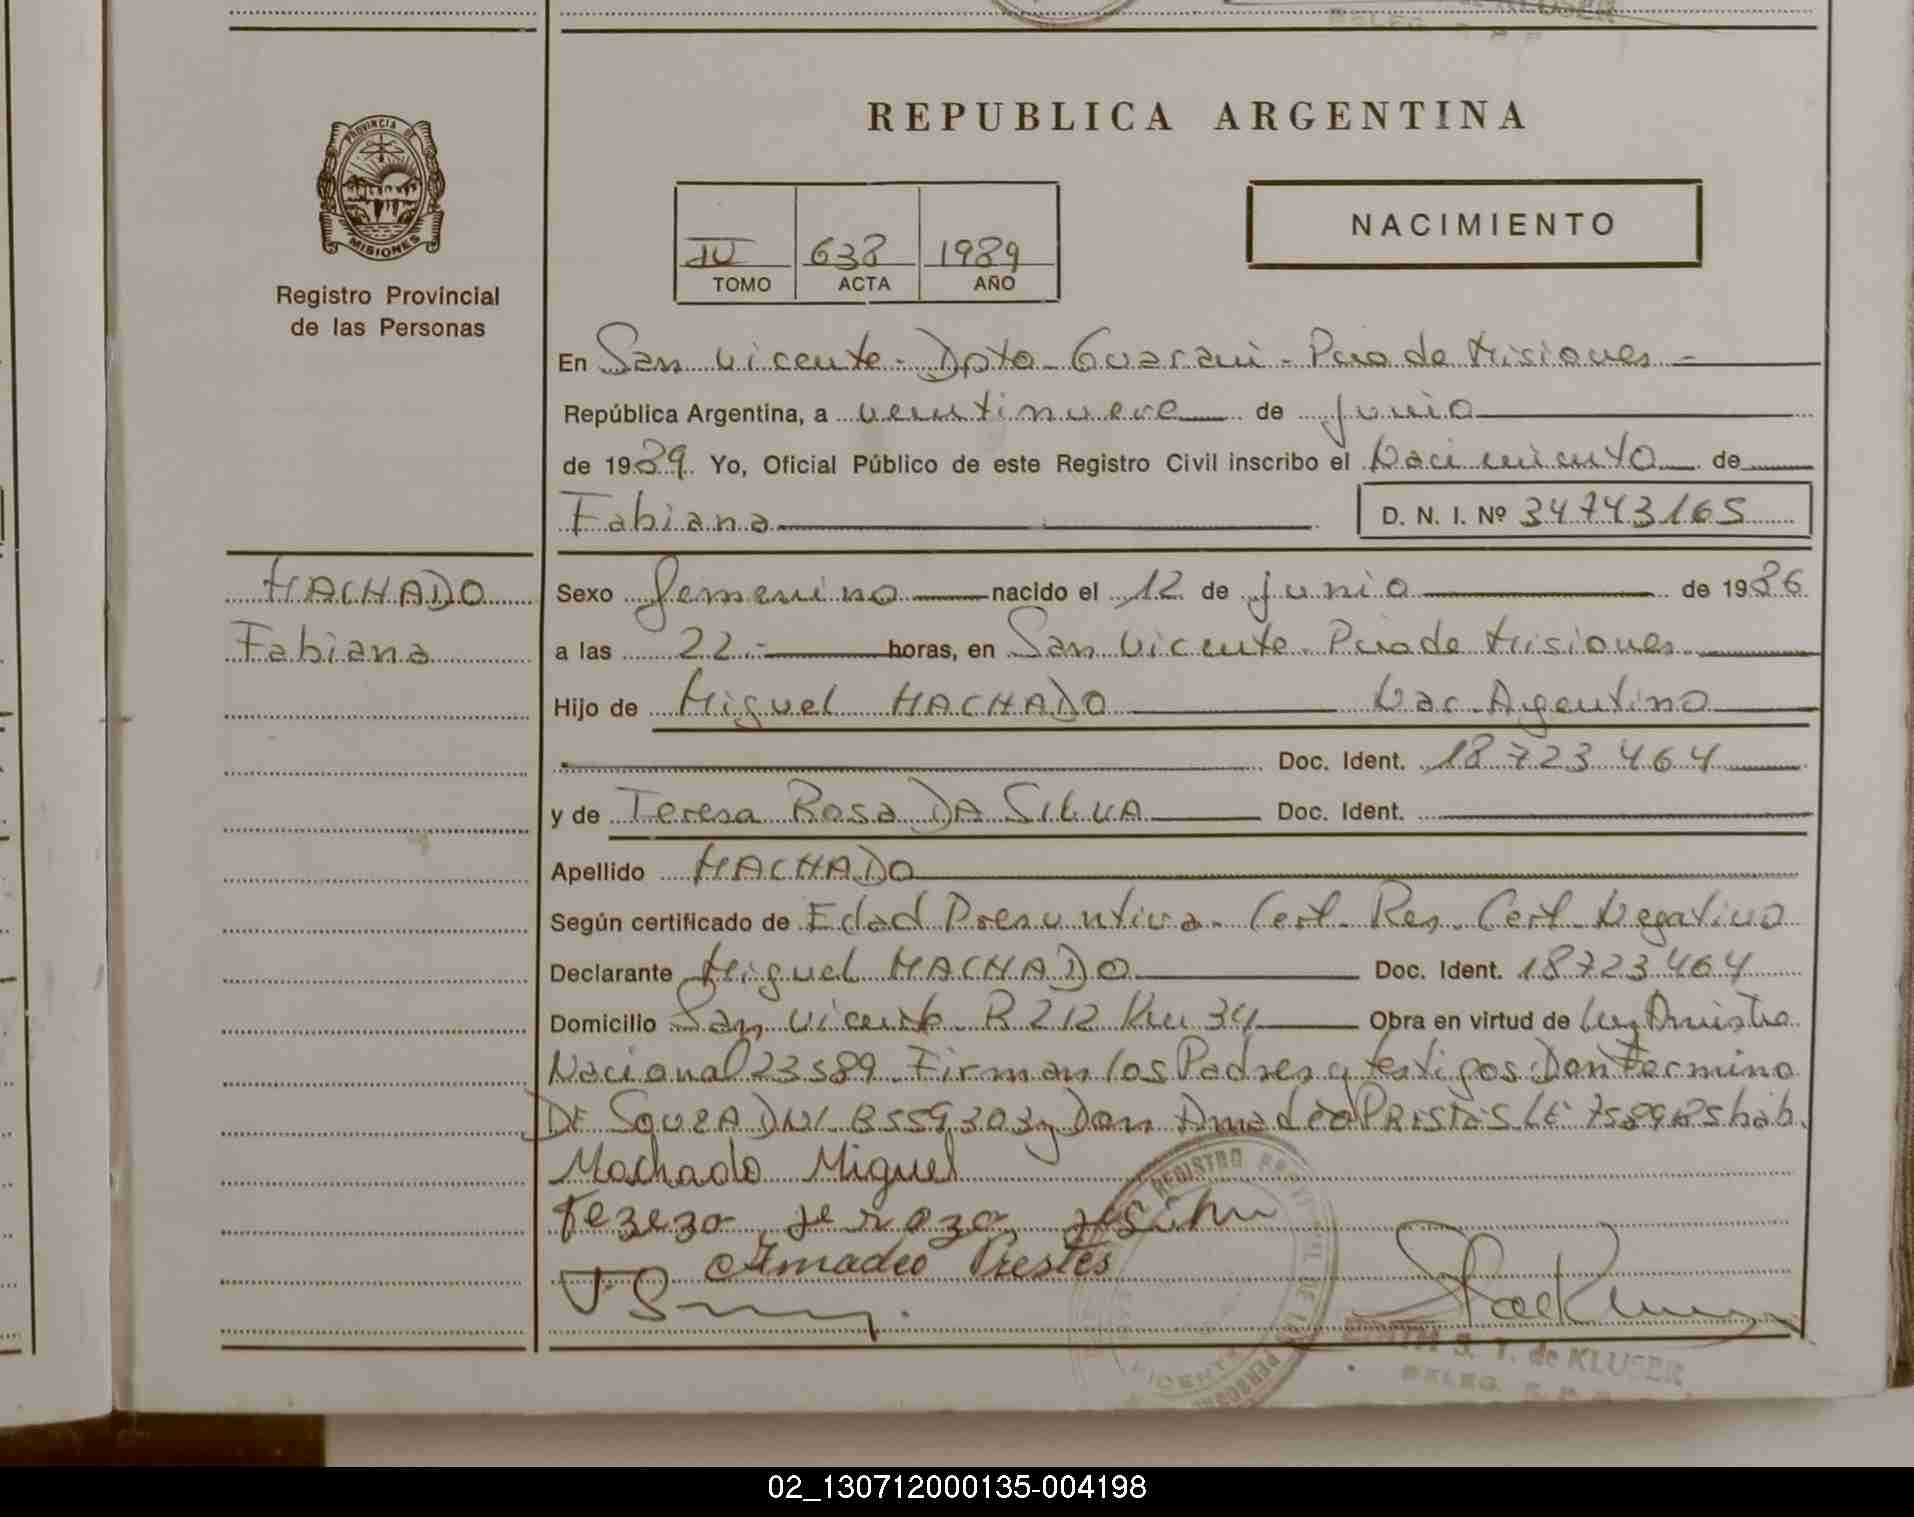 PROVINCIA DE
MISIONES
Registro Provincial
de las Personas
REPUBLICA ARGENTINA
NACIMIENTO
IV 638 1989
TOMO ACTA AÑO
En San Vicente - Dpto - Guarani - Pcia de Misiones -
República Argentina, a veintinueve de junio
de 1989. Yo, Oficial Público de este Registro Civil inscribo el Nacimiento de
Fabiana D. N. I. Nº 34743165
MACHADO
Fabiana
Sexo femenino nacido el 12 de junio de 1986
a las 22.- horas, en San Vicente - Pcia de Misiones
Hijo de Miguel MACHADO Nac. Argentino
Doc. Ident. 18723464
y de Teresa Rosa DA SILVA Doc. Ident.
Apellido MACHADO
Según certificado de Edad Presuntiva - Cert. Res. Cert. Negativo
Declarante Miguel MACHADO Doc. Ident. 18723464
Domicilio San Vicente R 212 Km 34 Obra en virtud de Ley Amistia
Nacional 23589. Firman los Padres y testigos: Don Fermino
DE SOUZA DNI. 8559303 y Don Amadeo PRESTES LE hab.
Machado Miguel
Amadeo Prestes
REGISTRO
S. T. de KLUSER
DELEG.
02_130712000135-004198